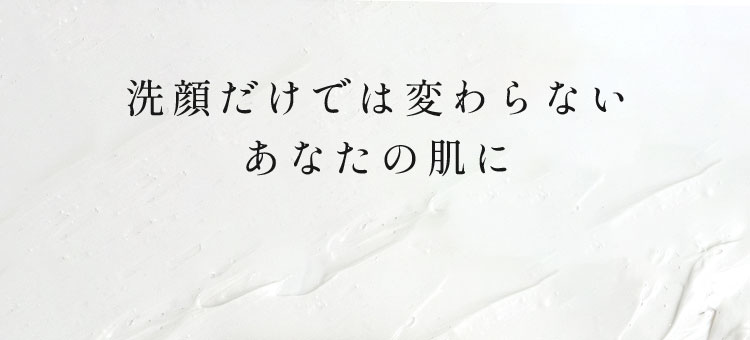 洗顔だけでは変わらない
あなたの肌に